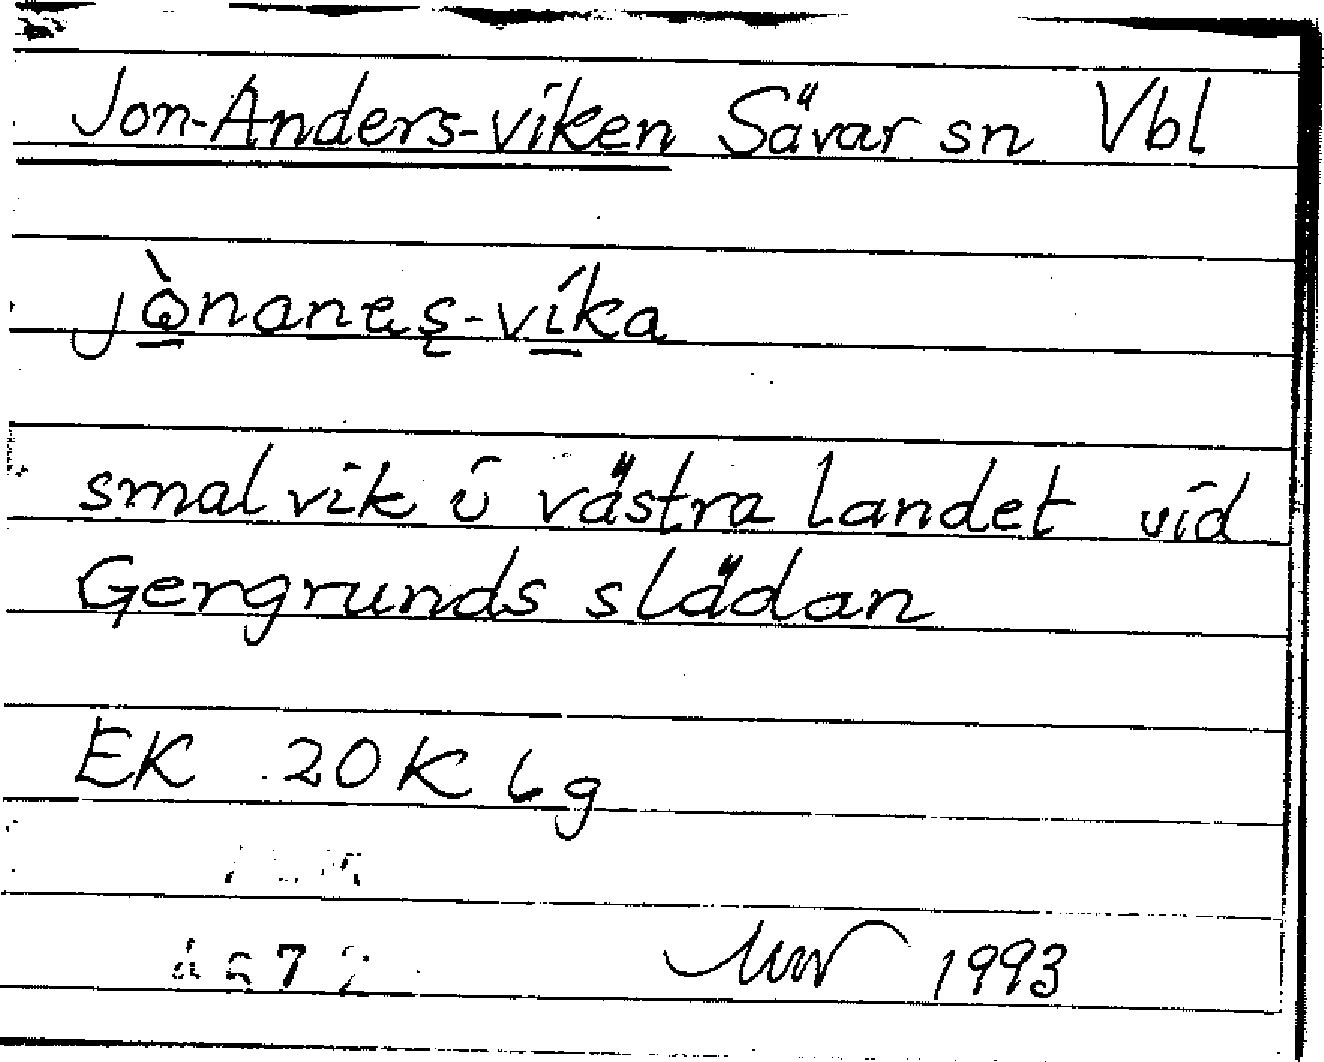 Jon-Anders-viken Sävar sn Vbl
smal vik i västra landet vid
Gergrunds slädan
EK 20K 6g
1993